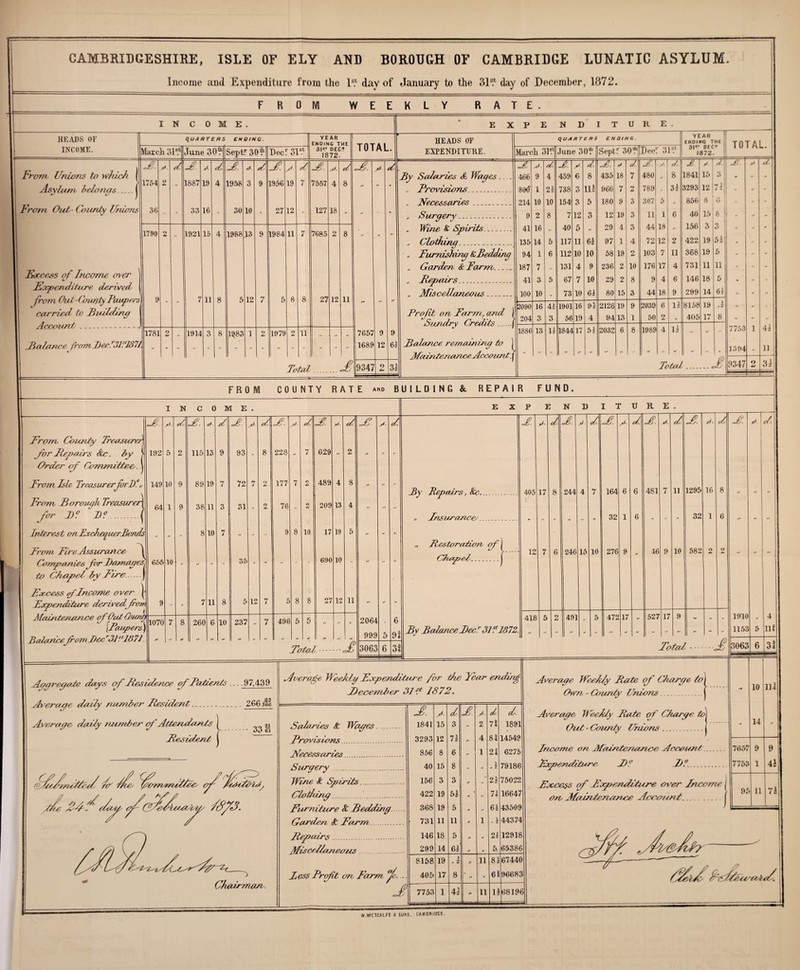 CAMBRIDGESHIRE, ISLE OF ELY AND BOROUGH OF CAMBRIDGE LUNATIC ASYLUM.
Income and Expenditure from the 1st day of January to the 31st day of December, 1872.
FROM WEEKLY RATE.
INCOME.
HEADS OF INCOME. QUARTERS ENDING. YEAR ENDING THE 31st DECr 1872. TOTAL.
March 31st June 30th Septr 30th Decr 31st
£. s. d. £. s. d. £. s. d. £. s. d. £. s. d. £. s. d.
From Unions to which Asylum belongs..... 1754 2 - 1887 19 4 1958 3 9 1956 19 7 7557 4 8
From Out-County Unions 36 - - 33 16 - 30 10 - 27 12 - 127 18 -
1790 2 - 1921 15 4 1988 13 9 1984 11 7 7685 2 8
Excess of Income over Expenditure derived from Out-County Paupers carried to Building Account 9 - - 7 11 8 5 12 7 5 8 8 27 12 11
1781 2 - 1914 3 8 1983 1 2 1979 2 11 - - - 7657 9 9
Balance from Decr 31st 1871 1689 12 6½
Total ...... £ 9347 2 3¾
EXPENDITURE.
HEADS OF EXPENDITURE. QUARTERS ENDING. YEAR ENDING THE 31st DECr 1872. TOTAL.
March 31st June 30th Septr 30th Decr 31st
£. s. d. £. s. d. £. s. d. £. s. d. £. s. d. £. s. d.
By Salaries & Wages.... 466 9 4 459 6 8 435 18 7 480 - 8 1841 15 3
" Provisions......... 806 1 2½ 738 3 11½ 966 7 2 789 - 3½ 3293 12 7½
" Necessaries......... 214 10 10 154 3 5 180 9 3 307 5 - 856 8 6
" Surgery......... 9 2 8 7 12 3 12 19 3 11 1 6 40 15 8
" Wine & Spirits......... 41 16 - 40 5 - 29 4 3 44 18 - 156 3 3
" Clothing......... 135 14 5 117 11 6½ 97 1 4 72 12 2 422 19 5½
" Furnishing & Bedding 94 1 6 112 10 10 58 19 2 103 7 11 368 19 5
" Garden & Farm...... 187 7 - 131 4 9 236 2 10 176 17 4 731 11 11
" Repairs......... 41 3 5 67 7 10 29 2 8 9 4 6 146 18 5
" Miscellaneous......... 100 10 - 73 10 6½ 80 15 3 44 18 9 299 14 6½
2090 16 4½ 1901 16 9½ 2126 19 9 2039 6 1½ 8158 19 -½
Profit on Farm, and Sundry Credits 204 3 3 56 19 4 94 13 1 50 2 - 405 17 8
1886 13 1½ 1844 17 5½ 2032 6 8 1989 4 1½ - - - 7753 1 4½
Balance remaining to Maintenance Account 1594 - 11
Total ...... £ 9347 2 3¾
FROM COUNTY RATE AND BUILDING & REPAIR FUND.
INCOME.
£. s. d. £. s. d. £. s. d. £. s. d. £. s. d. £. s. d.
From County Treasurer for Repairs &c. by Order of Committee. 192 5 2 115 13 9 93 - 8 228 - 7 629 - 2
From Isle Treasurer for Do. 149 10 9 89 19 7 72 7 2 177 7 2 489 4 8
From Borough Treasurer for Do Do ...... 64 1 9 38 11 3 31 - 2 76 - 2 209 13 4
Interest on Exchequer Bonds - - - 8 10 7 - - - 9 8 10 17 19 5
From Fire Assurance Companies for Damages to Chapel by Fire..... 655 10 - - - - 35 - - - - - 690 10 -
Excess of Income over Expenditure derived from 9 - - 7 11 8 5 12 7 5 8 8 27 12 11
Maintenance of Out County [Paupers] 1070 7 8 260 6 10 237 - 7 496 5 5 - - - 2064 - 6
Balance from Decr 31st 1871. 999 5 9¾
Total ...... £ 3063 6 3¾
EXPENDITURE.
£. s. d. £. s. d. £. s. d. £. s. d. £. s. d. £. s. d.
By Repairs, &c......... 405 17 8 244 4 7 164 6 6 481 7 11 1295 16 8
" Insurance......... - - - - - - 32 1 6 - - - 32 1 6
" Restoration of Chapel......... 12 7 6 246 15 10 276 9 - 46 9 10 582 2 2
418 5 2 491 - 5 472 17 - 527 17 9 - - - 1910 - 4
By Balance Decr 31st 1872. 1153 5 11¾
Total ...... £ 3063 6 3¾
Aggregate days of Residence of Patients ... 97,439
Average daily number Resident ......... 266
Average daily number of Attendants Resident ...... 33
Submitted to the Committee of Visitors,
the 24th day of February 1873.
Chairman.
Average Weekly Expenditure for the Year ending December 31st 1872.
£. s. d. £ s. d. d.
Salaries & Wages...... 1841 15 3 - 2 7½ 1891
Provisions......... 3293 12 7½ - 4 8½ 14549
Necessaries......... 856 8 6 - 1 2½ 6275
Surgery......... 40 15 8 - - -½ 79186
Wine & Spirits......... 156 3 3 - - 2½ 75022
Clothing......... 422 19 5½ - - 7½ 16647
Furniture & Bedding..... 368 19 5 - - 6½ 43509
Garden & Farm...... 731 11 11 - 1 -½ 44374
Repairs......... 146 18 5 - - 2½ 12918
Miscellaneous......... 299 14 6½ - - 5 65386
8158 19 -½ - 11 8½ 67440
Less Profit on Farm &c... 405 17 8 - - 6½ 96683
£ 7753 1 4½ - 11 1½ 68196
Average Weekly Rate of Charge to Own-County Unions......... - 10 11¾
Average Weekly Rate of Charge to Out-County Unions......... - 14 -
Income on Maintenance Account...... 7657 9 9
Expenditure Do Do ......... 7753 1 4½
Excess of Expenditure over Income on Maintenance Account......... 95 11 7½
Clerk & Steward.
W. METCALFE & SONS, CAMBRIDGE.